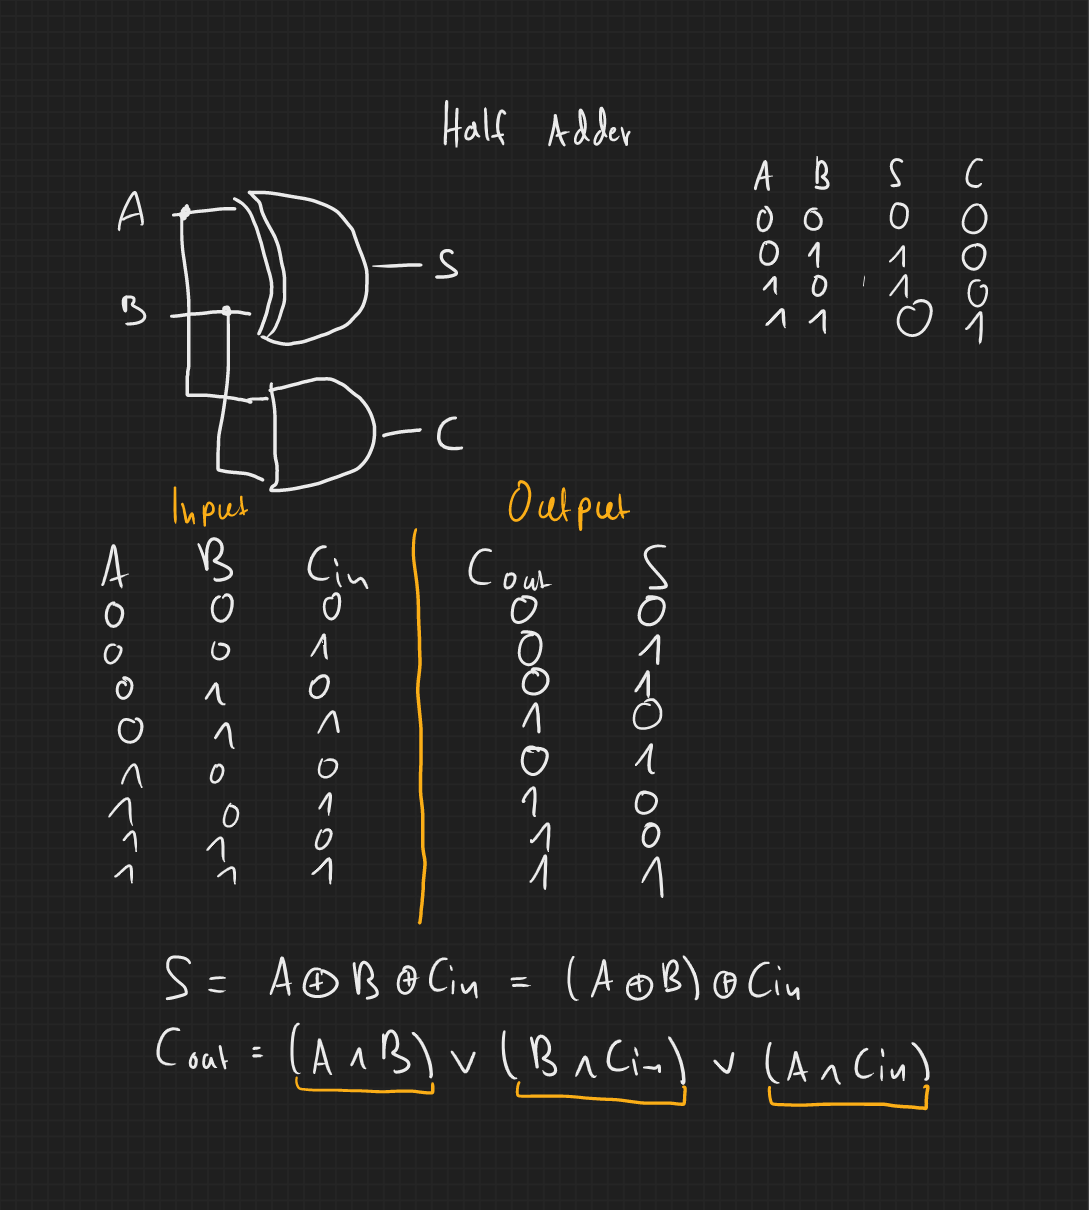 Half Adder
A B S C
0 0 0 0
0 1 1 0
1 0 1 0
1 1 0 1
A
S
B
C
Input Output
A B Cin Cout S
0 0 0 0 0
0 0 1 0 1
0 1 0 0 1
0 1 1 1 0
1 0 0 0 1
1 0 1 1 0
1 1 0 1 0
1 1 1 1 1
S = A ⊕ B ⊕ Cin = (A ⊕ B) ⊕ Cin
Cout = (A ∧ B) ∨ (B ∧ Cin) ∨ (A ∧ Cin)